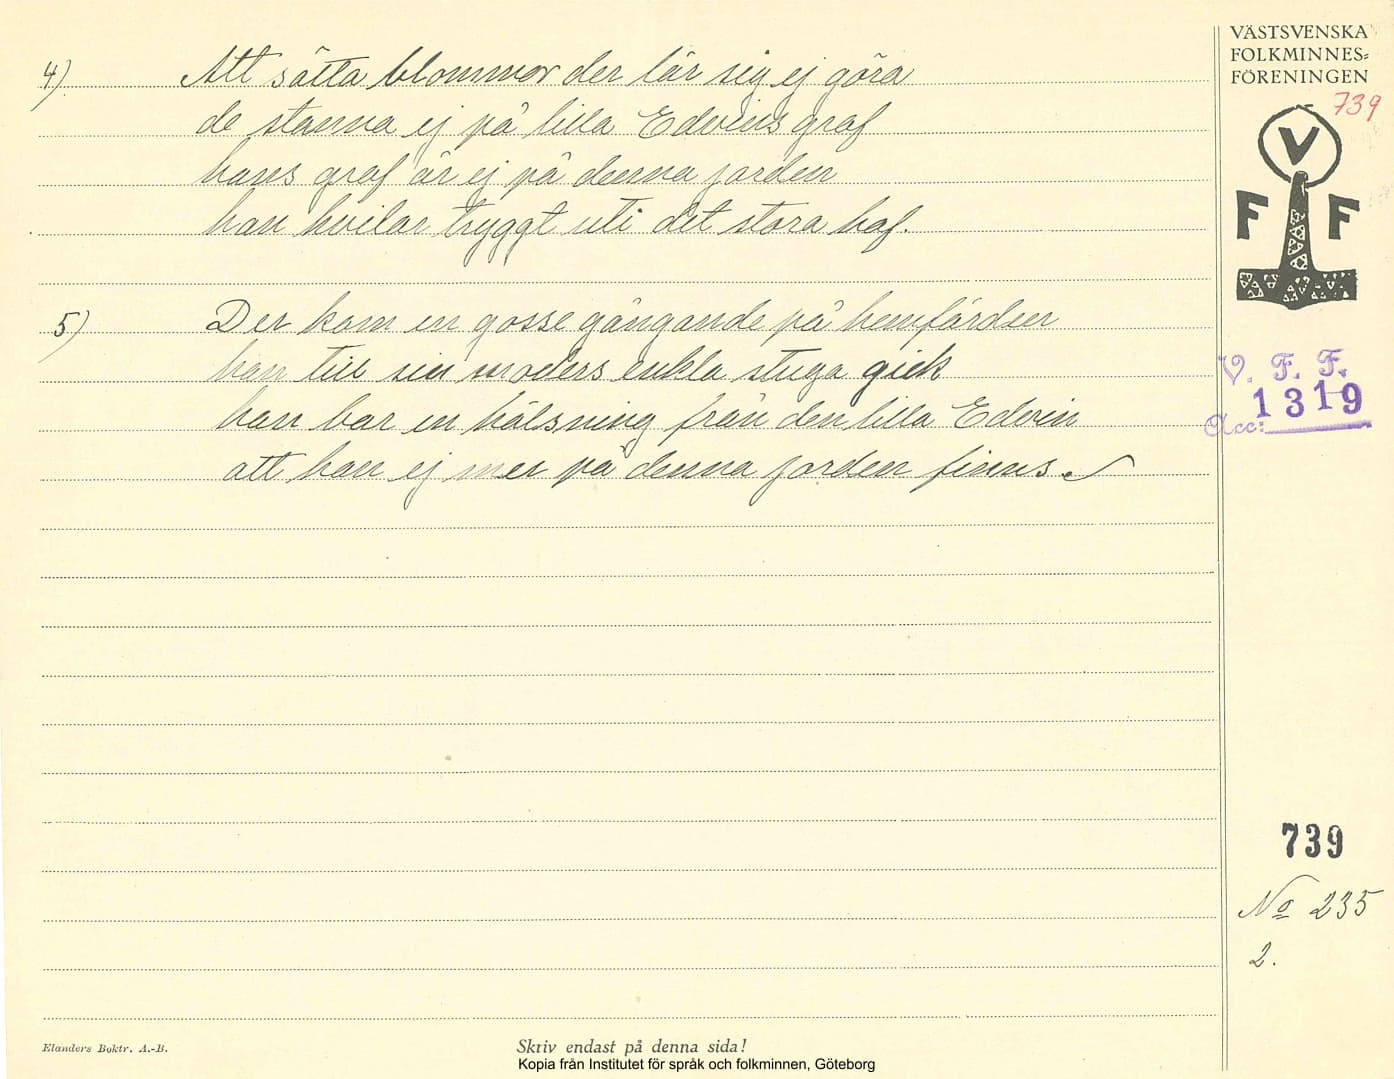 VÄSTSVENSKA
FOLKMINNES-
FÖRENINGEN
739
V
F F
V. F. F.
1319
Acc:
4) Att sätta blommor der lär sig ej göra
de stanna ej på lilla Edvins graf
hans graf är ej på denna jorden
han hvilar tryggt uti det stora haf.
5) Der kom en gosse gångande på hemfärden
han till sin moders enkla stuga gick
han bar en hälsning från den lilla Edvin
att han ej mer på denna jorden finns.
739
No 235
2.
Elanders Boktr. A.-B.
Skriv endast på denna sida!
Kopia från Institutet för språk och folkminnen, Göteborg